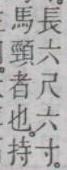 長六尺六寸。
馬頸者也。持